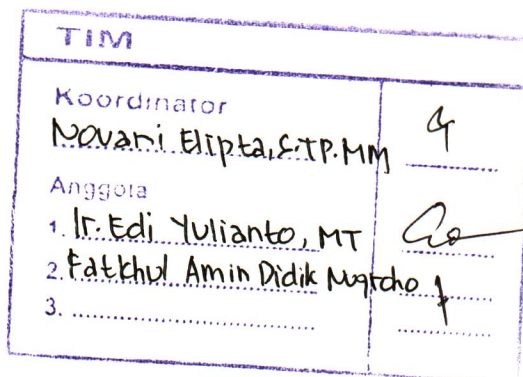 TIM
Koordinator
Novani Elipta, S.TP. MM
Anggota
1. Ir. Edi Yulianto, MT
2. Fatkhul Amin Didik Nugroho
3. ........................